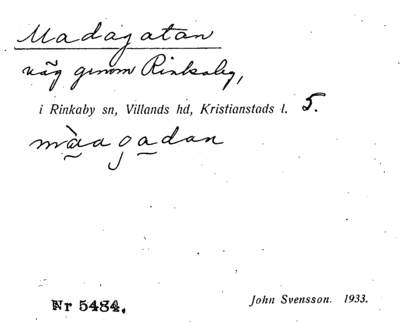 Madagatan
väg genom Rinkaby,
i Rinkaby sn, Villands hd, Kristianstads l. 5.
màagadan
Nr 5484.
John Svensson. 1933.